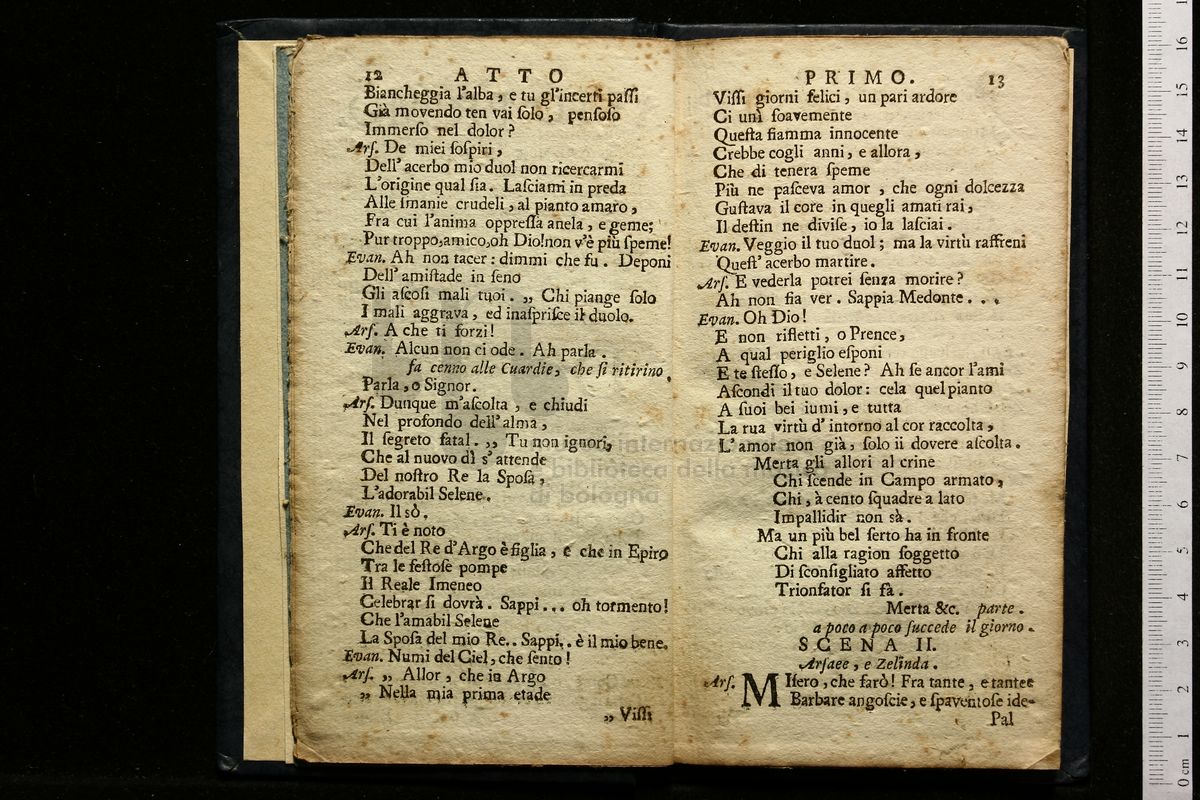 12 ATTO
Biancheggia l'alba, e tu gl'incerti paſſi
Già movendo ten vai ſolo, penſoſo
Immerſo nel dolor?
Arſ. De miei ſoſpiri,
Dell' acerbo mio duol non ricercarmi
L'origine qual ſia. Laſciami in preda
Alle ſmanie crudeli, al pianto amaro,
Fra cui l'anima oppreſſa anela, e geme;
Pur troppo, amico, oh Dio! non v'è più ſpeme!
Evan. Ah non tacer: dimmi che fu. Deponi
Dell' amiſtade in ſeno
Gli aſcoſi mali tuoi. „ Chi piange ſolo
I mali aggrava, ed inaſpriſce il duolo.
Arſ. A che ti forzi!
Evan. Alcun non ci ode. Ah parla.
fa cenno alle Guardie, che ſi ritirino.
Parla, o Signor.
Arſ. Dunque m'aſcolta, e chiudi
Nel profondo dell'alma,
Il ſegreto fatal. „ Tu non ignori,
Che al nuovo dì s'attende
Del noſtro Re la Spoſa,
L'adorabil Selene.
Evan. Il sò.
Arſ. Ti è noto
Che del Re d'Argo è figlia, e che in Epiro
Tra le feſtoſe pompe
Il Reale Imeneo
Celebrar ſi dovrà. Sappi... oh tormento!
Che l'amabil Selene
La Spoſa del mio Re.. Sappi.. è il mio bene.
Evan. Numi del Ciel, che ſento!
Arſ. „ Allor, che in Argo
„ Nella mia prima etade
„ Viſſi
PRIMO. 13
Viſſi giorni felici, un pari ardore
Ci unì ſoavemente
Queſta fiamma innocente
Crebbe cogli anni, e allora,
Che di tenera ſpeme
Più ne paſceva amor, che ogni dolcezza
Guſtava il core in quegli amati rai,
Il deſtin ne diviſe, io la laſciai.
Evan. Veggio il tuo duol; ma la virtù raffreni
Queſt' acerbo martire.
Arſ. E vederla potrei ſenza morire?
Ah non fia ver. Sappia Medonte...
Evan. Oh Dio!
E non rifletti, o Prence,
A qual periglio eſponi
E te ſteſſo, e Selene? Ah ſe ancor l'ami
Aſcondi il tuo dolor: cela quel pianto
A ſuoi bei iumi, e tutta
La rua virtù d' intorno al cor raccolta,
L'amor non già, ſolo ii dovere aſcolta.
Merta gli allori al crine
Chi ſcende in Campo armato,
Chi, à cento ſquadre a lato
Impallidir non sà.
Ma un più bel ſerto ha in fronte
Chi alla ragion ſoggetto
Di ſconſigliato affetto
Trionfator ſi fa.
Merta &c. parte.
a poco a poco ſuccede il giorno.
SCENA II.
Arſaee, e Zelinda.
Arſ. MIſero, che farò! Fra tante, e tante
Barbare angoſcie, e ſpaventoſe ide-
Pal
0 cm 1 2 3 4 5 6 7 8 9 10 11 12 13 14 15 16